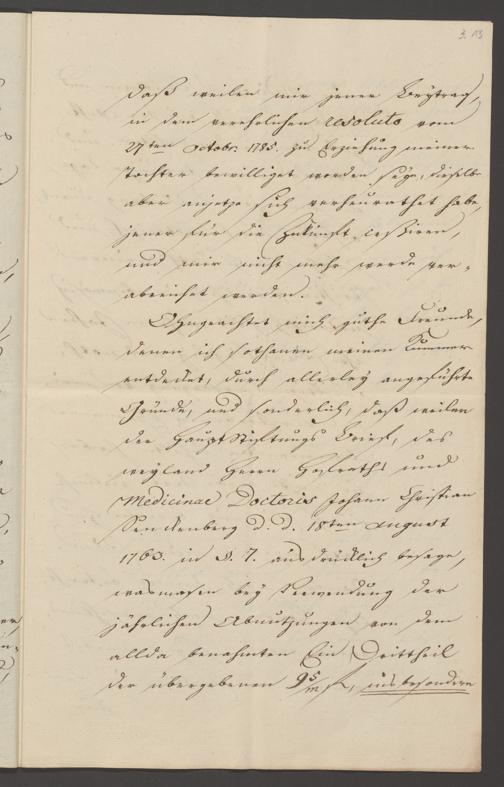 3. 113
daß weilen mir jener Beytrag,
in dem verehrlichen resoluto vom
27ten Octobr. 1785. zu Erziehung meiner
Tochter bewilliget worden seye, dieselbe
aber anjetzo sich verheurathet habe,
jener für die Zukunft cessiren,
und mir nicht mehr werde ver-
abreichet werden.
Ohngeachtet mich guthe Freunde,
denen ich sothanen meinen Kummer
entdecket, durch allerley angeführte
Gründe, und sonderlich, daß weilen
der Haupt Stiftungs Brief, des
weyland Herrn Hofraths und
Medicinae Doctoris Johann Christian
Senckenberg d. d. 18ten August
1763. in §. 7. ausdrücklich besage,
wasmasen bey Verwendung der
jährlichen Abnutzungen von dem
allda benahmten Ein Drittheil
der übergebenen 95/m f, insbesondere